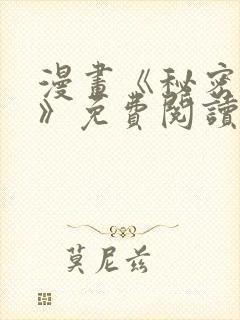 漫畫《秘密
》免費閱讀
莫尼兹